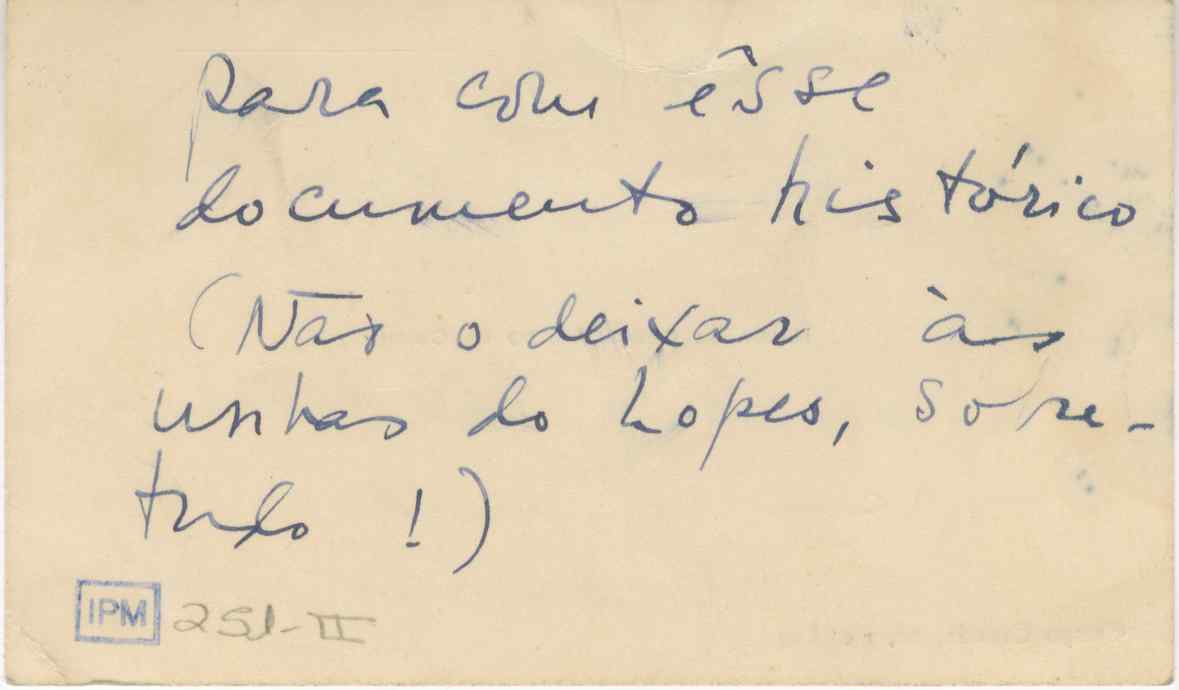 para com êsse
documento histórico
(Não o deixar às
unhas do Lopes, sobre-
tudo !)
IPM 251-II